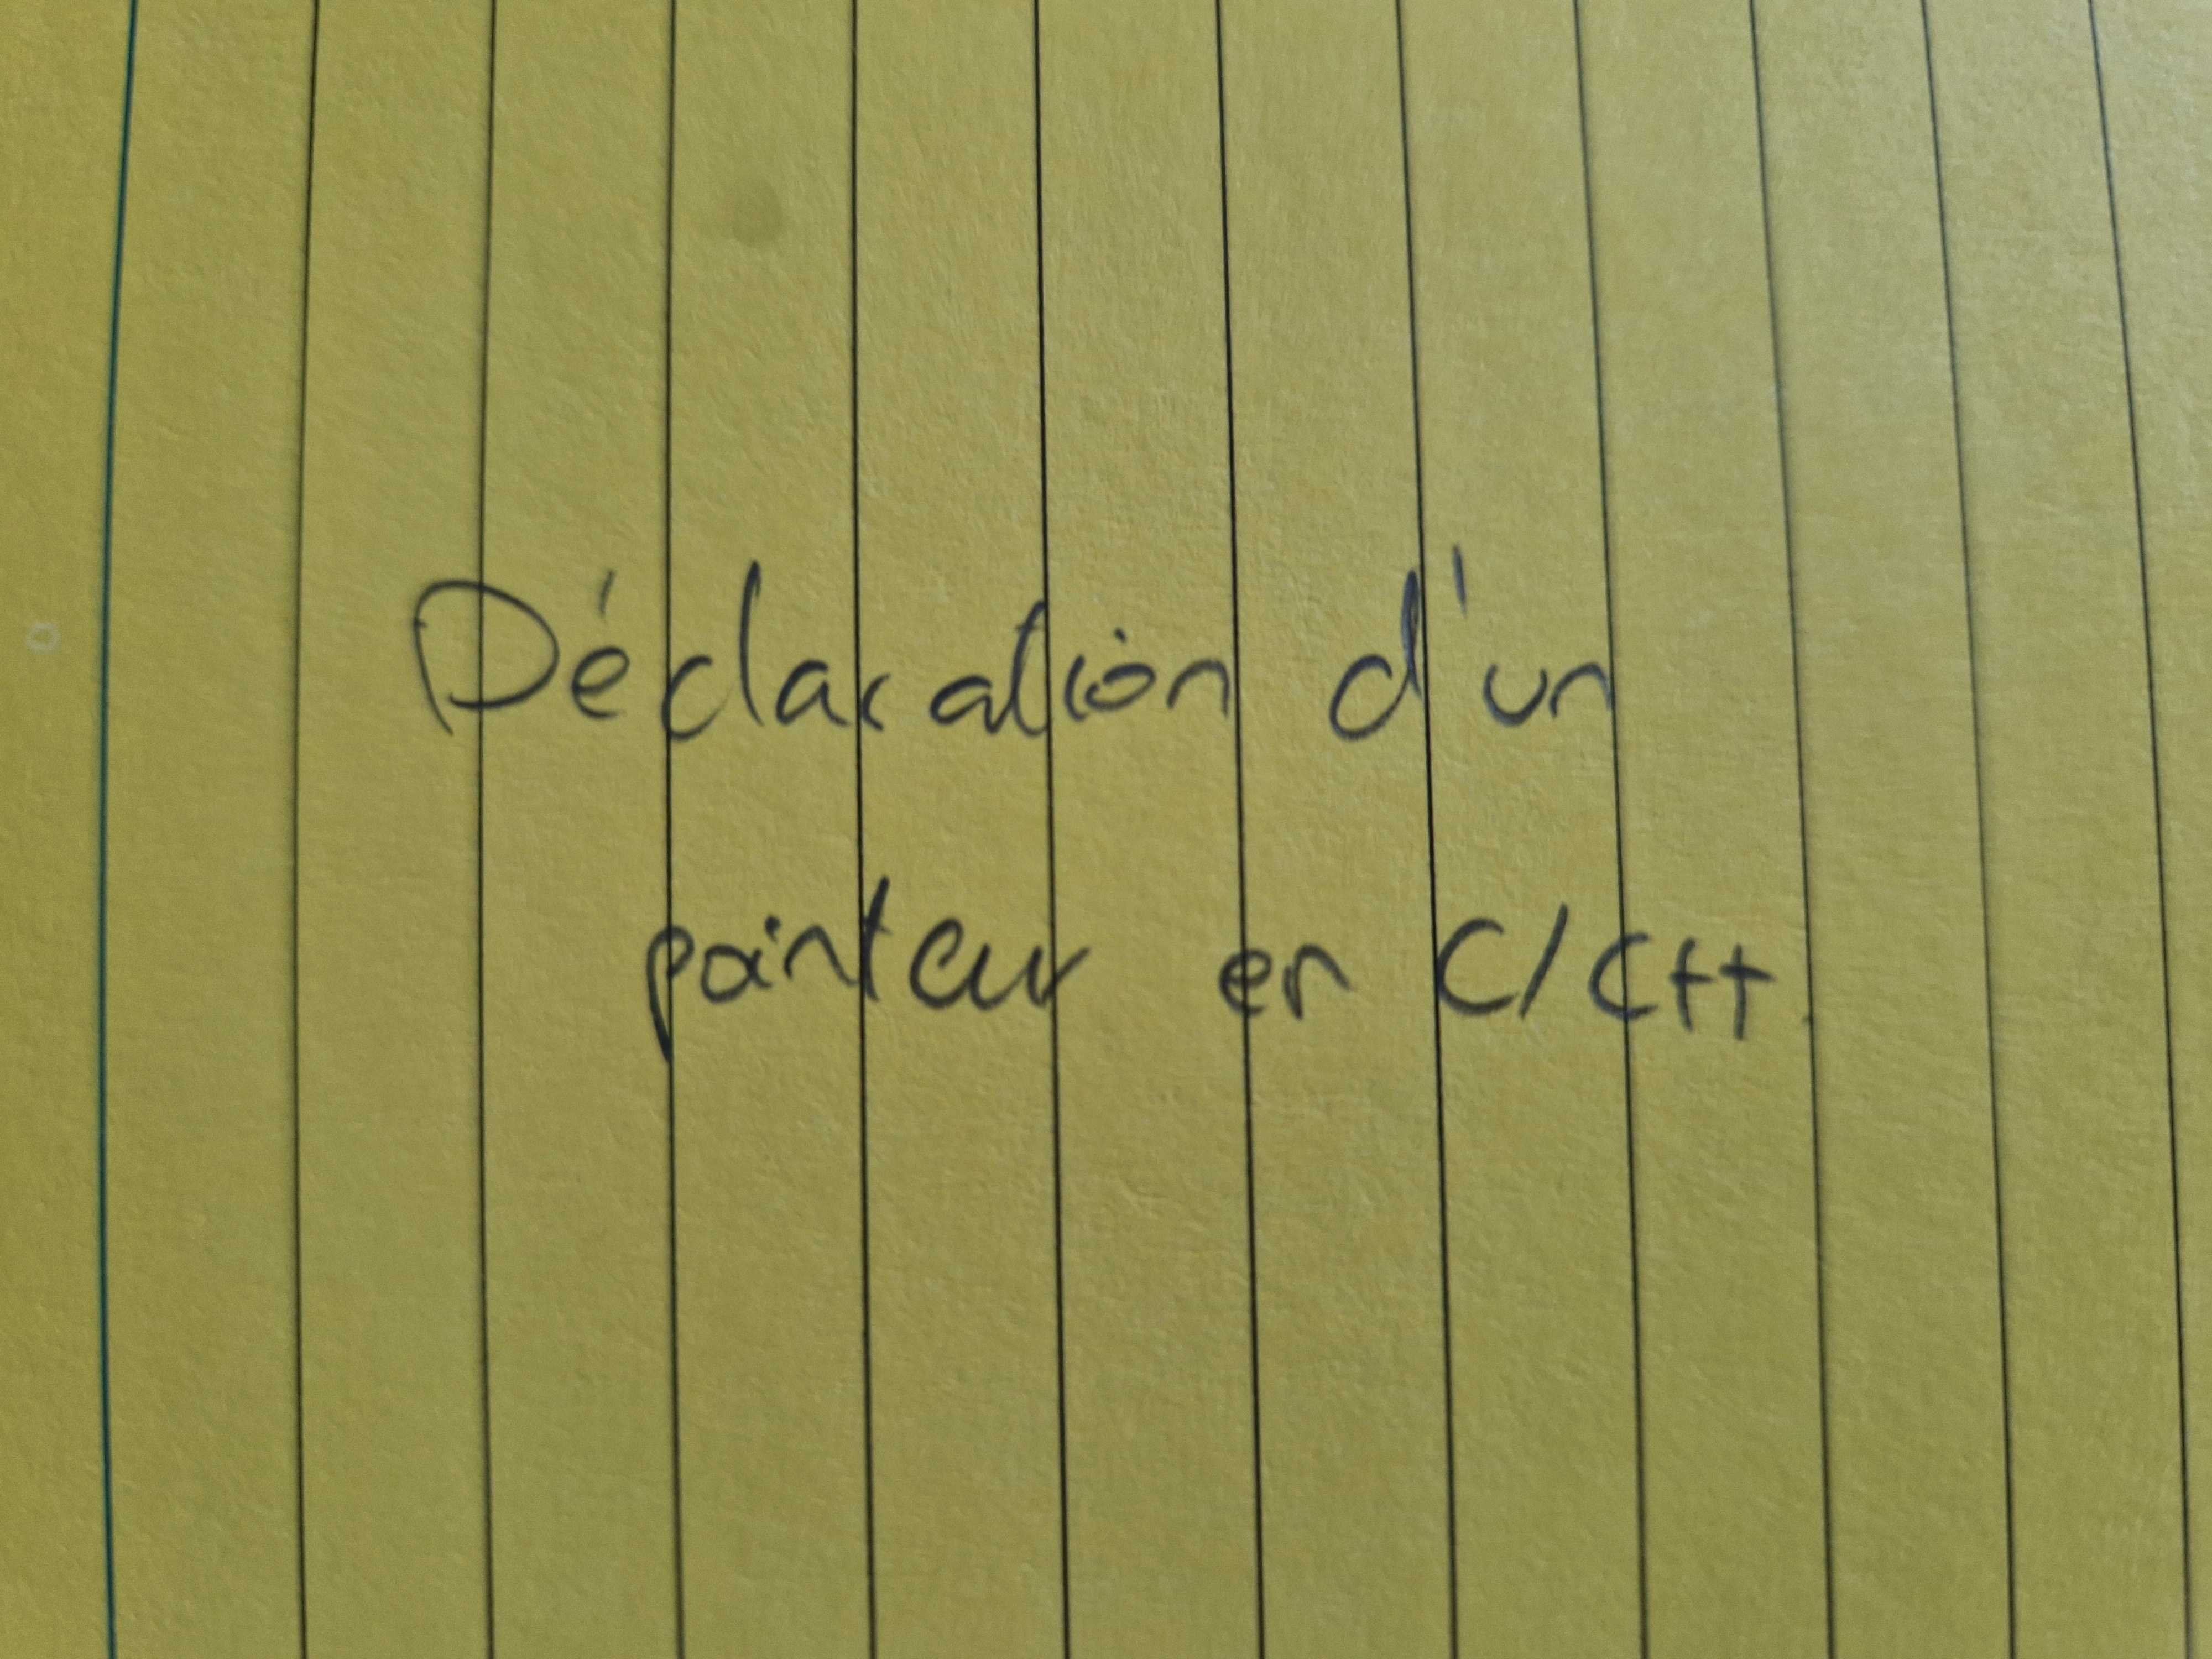 Déclaration d'un
pointeur en C/C++